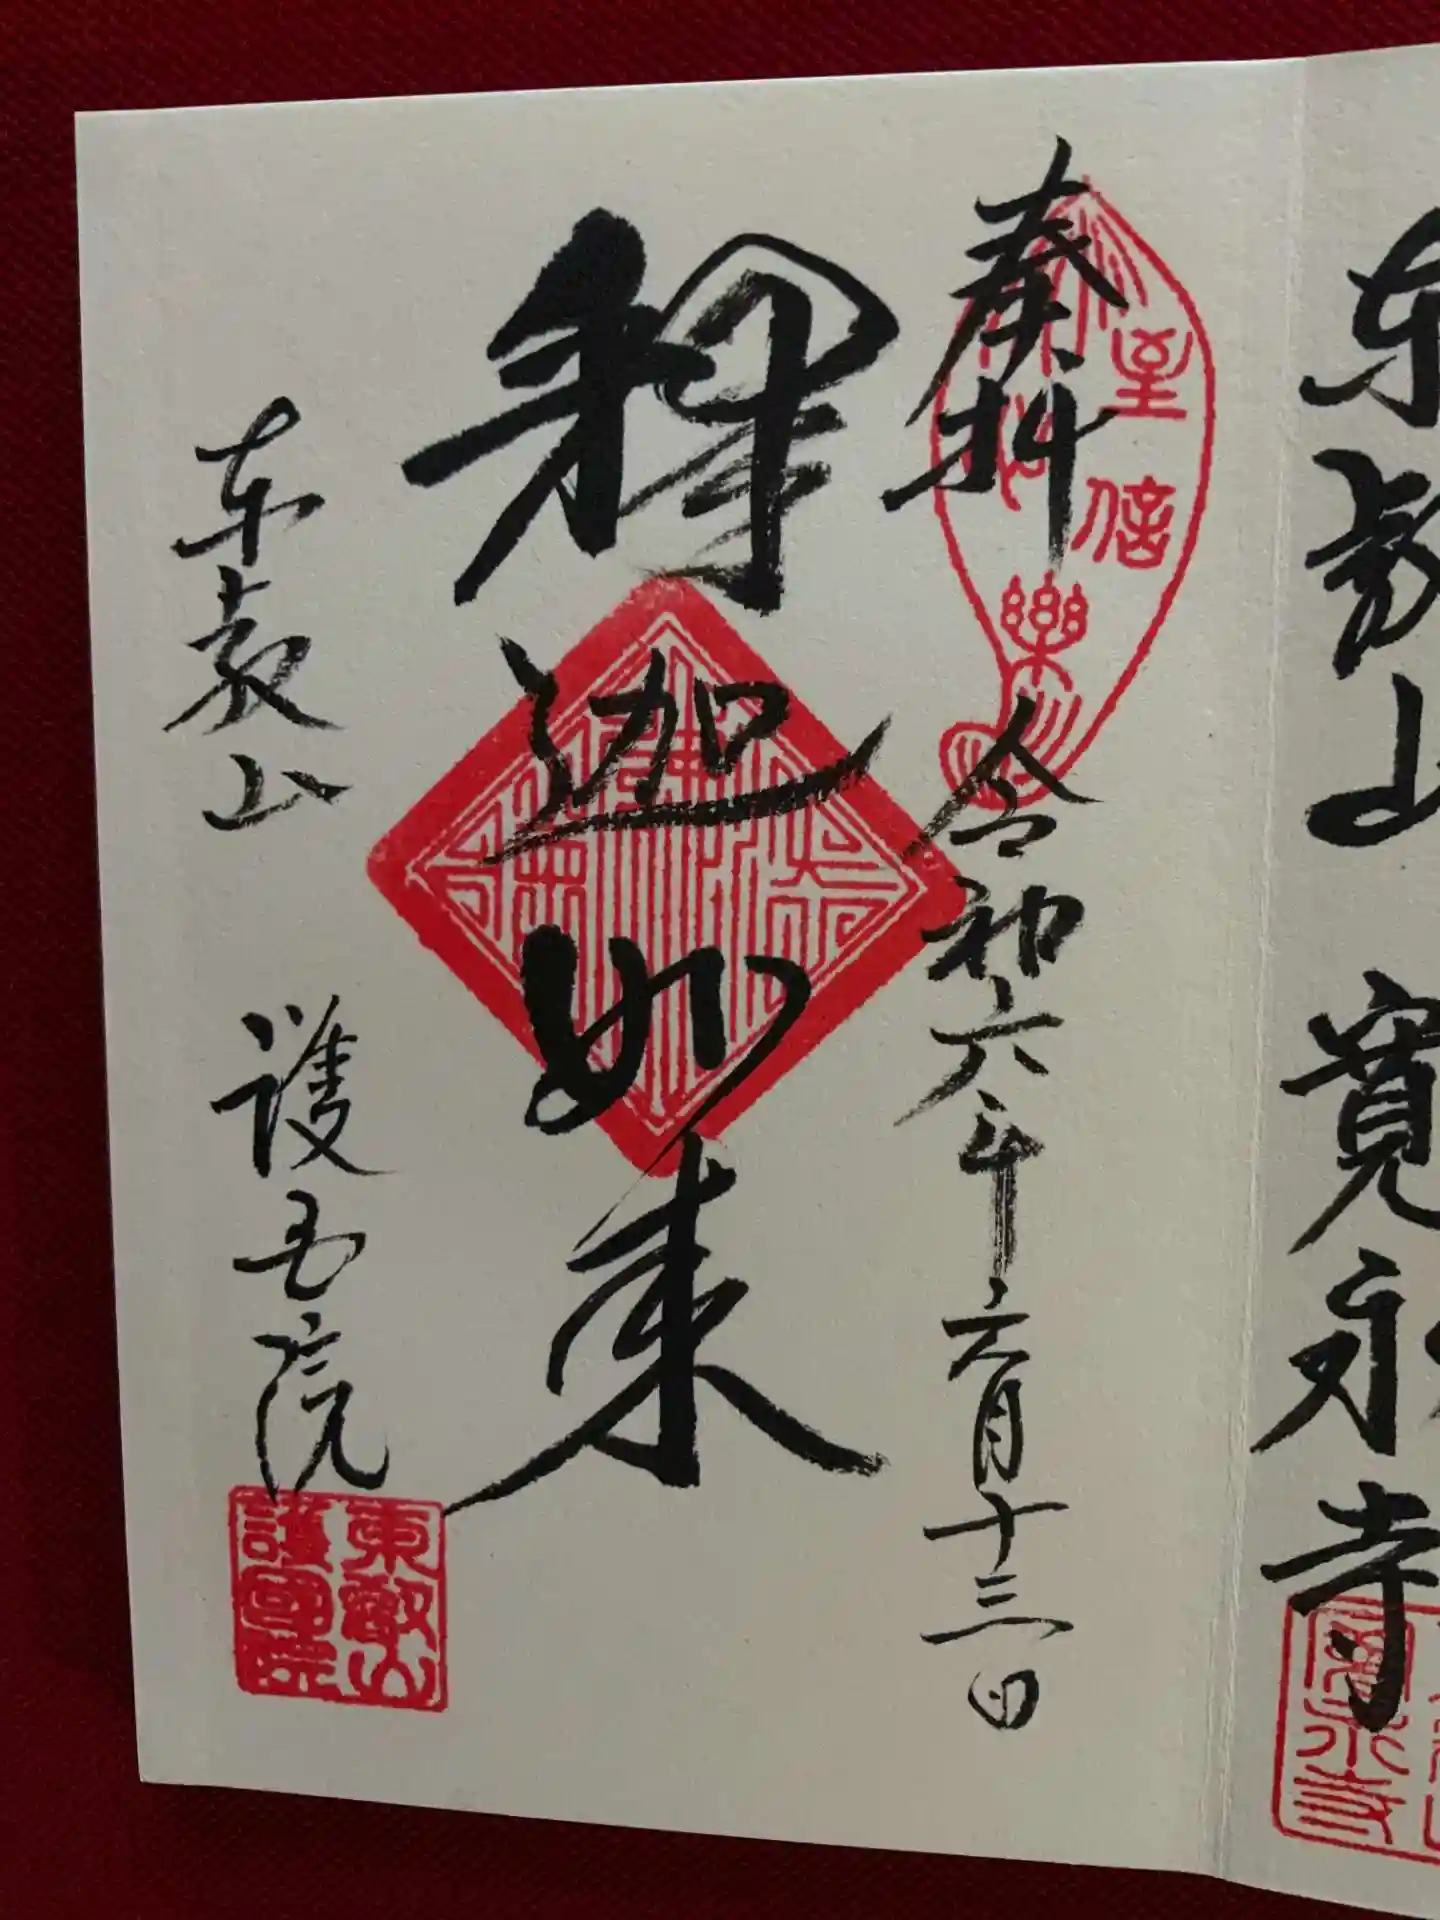 東叡山　寛永寺
奉拝　令和六年六月十三日
至信樂
釋迦如来
東叡山　護国院
東叡山
護國院